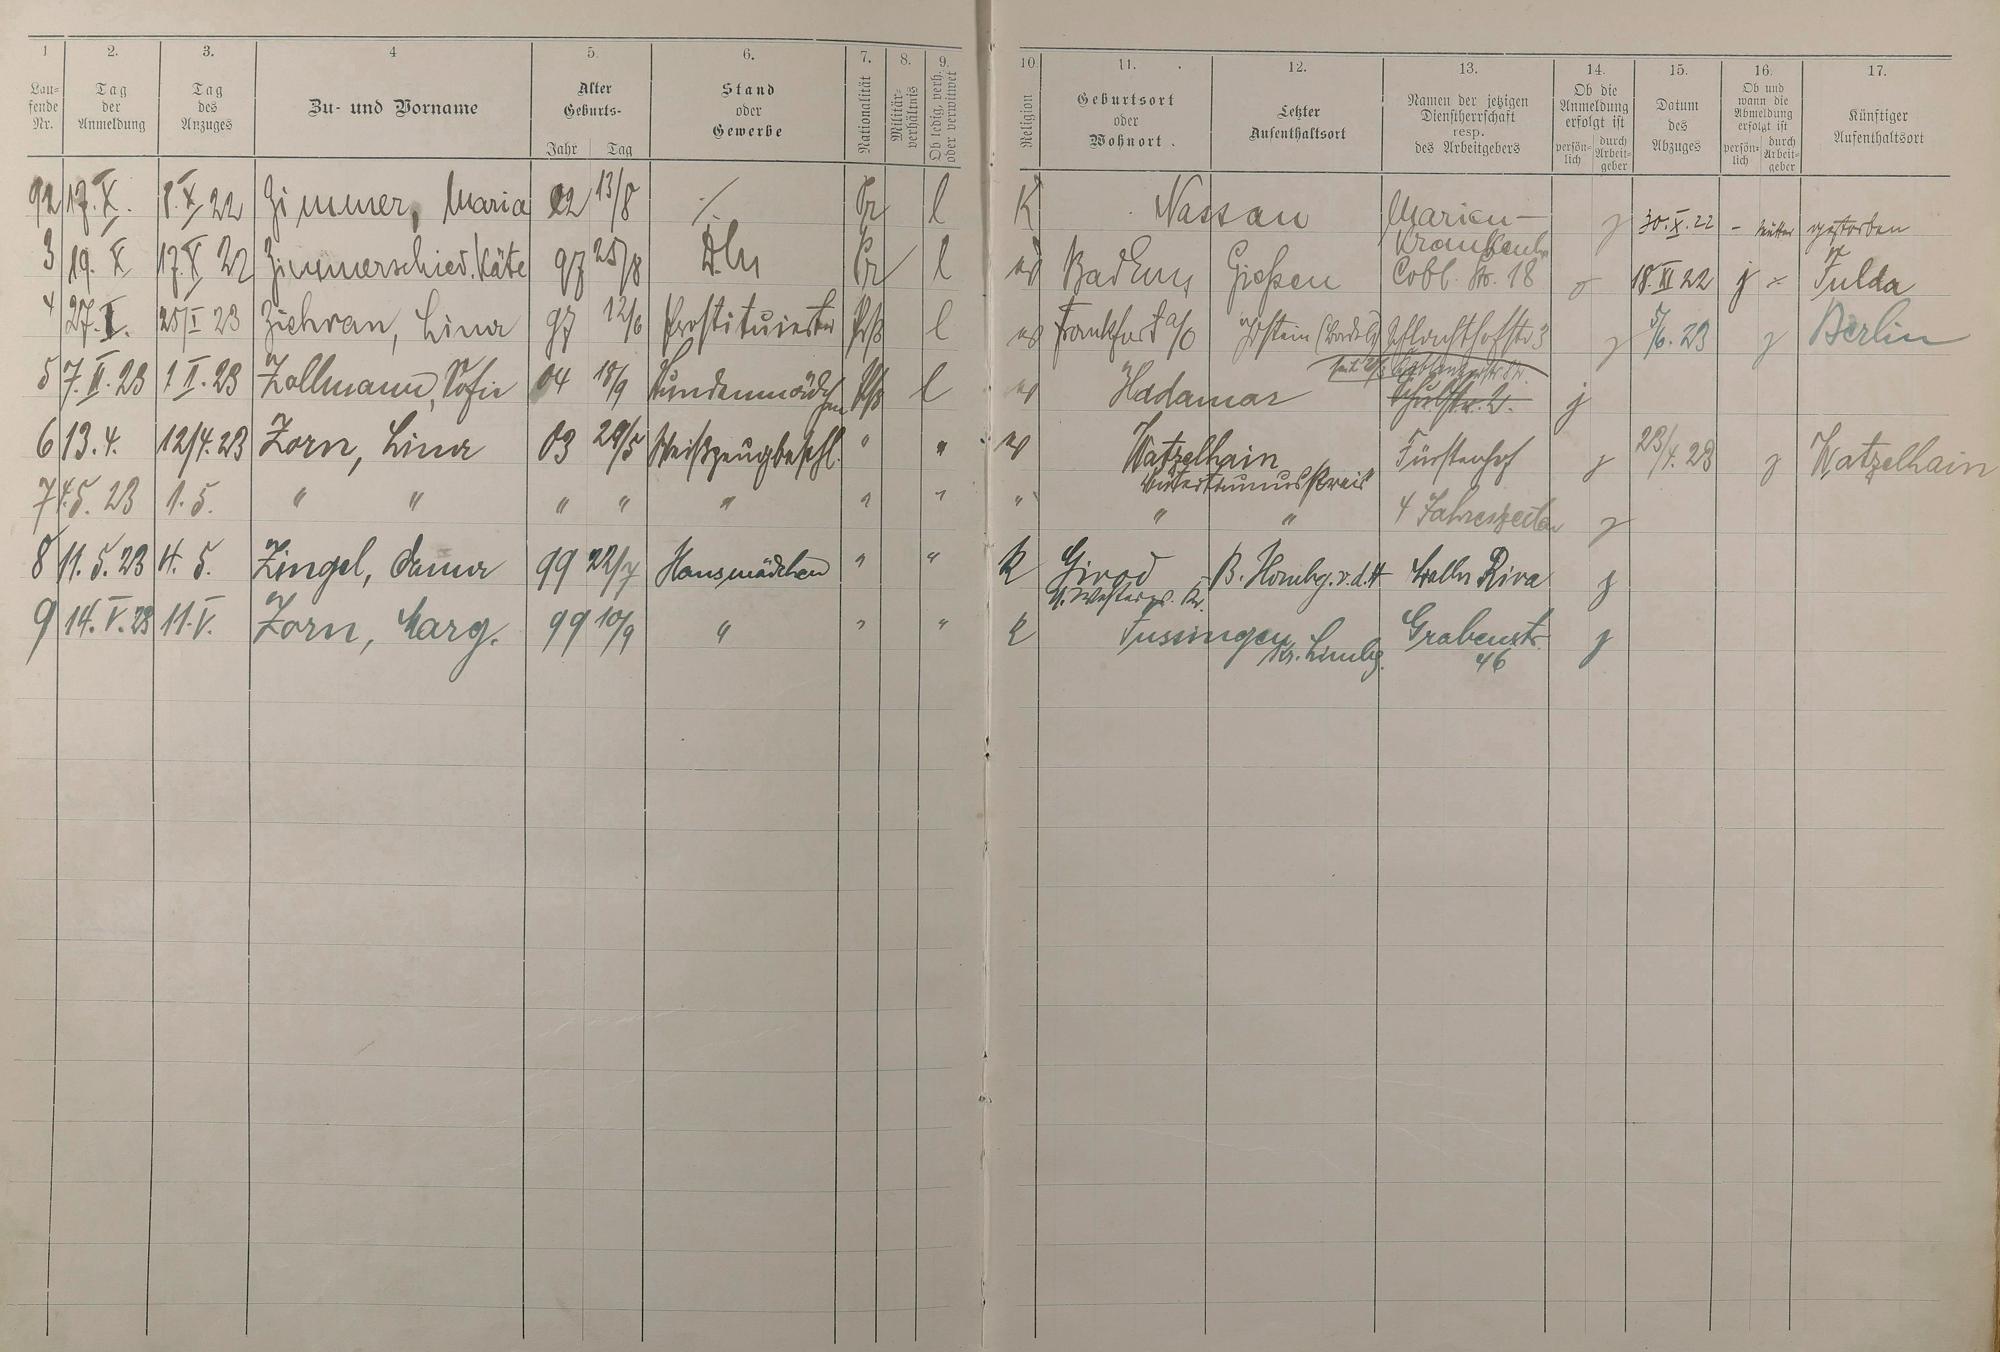 1 2. 3. 4 5. 6. 7. 8. 9. 10. 11. 12. 13. 14. 15. 16. 17.
Laufende Nr. Tag der Anmeldung Tag des Anzuges Zu- und Vorname Alter Geburts- Jahr Tag Stand oder Gewerbe Nationalität Militärverhältnis Ob ledig, verh. oder verwitwet Religion Geburtsort oder Wohnort. Letzter Aufenthaltsort Namen der jetzigen Dienstherrschaft resp. des Arbeitgebers Ob die Anmeldung erfolgt ist persönlich durch Arbeitgeber Datum des Abzuges Ob und wann die Abmeldung erfolgt ist persönlich durch Arbeitgeber Künftiger Aufenthaltsort
92 17. X. 8. X 22 Zimmer, Maria 02 13/8 ·/. Pr l K Nassau Marien- Krankenh. j 30. X. 22 - gestorben
3 19. X 17. X 22 Zimmerschied, Käte 97 25/8 Pr l ev Bad Ems Gießen Cobl. Str. 18 18. XI 22 j Fulda
4 27. I. 25/I 23 Lina 97 12/6 Prostituierte Prß l ev Frankfurt a/O Idstein Schlachthofstr 3 j 5/6. 23 j Berlin
5 7. II. 23 1 II. 23 Zollmann, Sofie 04 18/9 Stundenmädchen Prß l ev Hadamar Schulstr. 2. j
6 13. 4. 12/4. 23 Zorn, Lina 03 29/5 Weißzeugbeschl. " " ev Watzelhain Untertaunuskreis Fürstenhof j 23/4. 23 j Watzelhain
7 4. 5. 23 1. 5. " " " " " " " " " " 4 Jahreszeiten j
8 11. 5. 23 4. 5. Zingel, Anna 99 22/7 Hausmädchen " " K Girod U. Westerw. Kr. B. Hombg. v. d. H Walln Riva j
9 14. V. 23 11. V. Zorn, Marg. 99 10/9 " " " K Fussingen Kr. Limbg. Grabenstr. 46 j